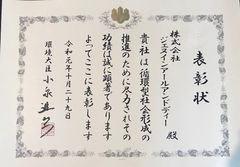 表彰状
株式会社
ジェネインアールアンドディー 殿
貴社は循環型社会形成の
推進のために尽力されその
功績は誠に顕著であります
よってここに表彰します
令和元年十月二十九日
環境大臣 小泉進